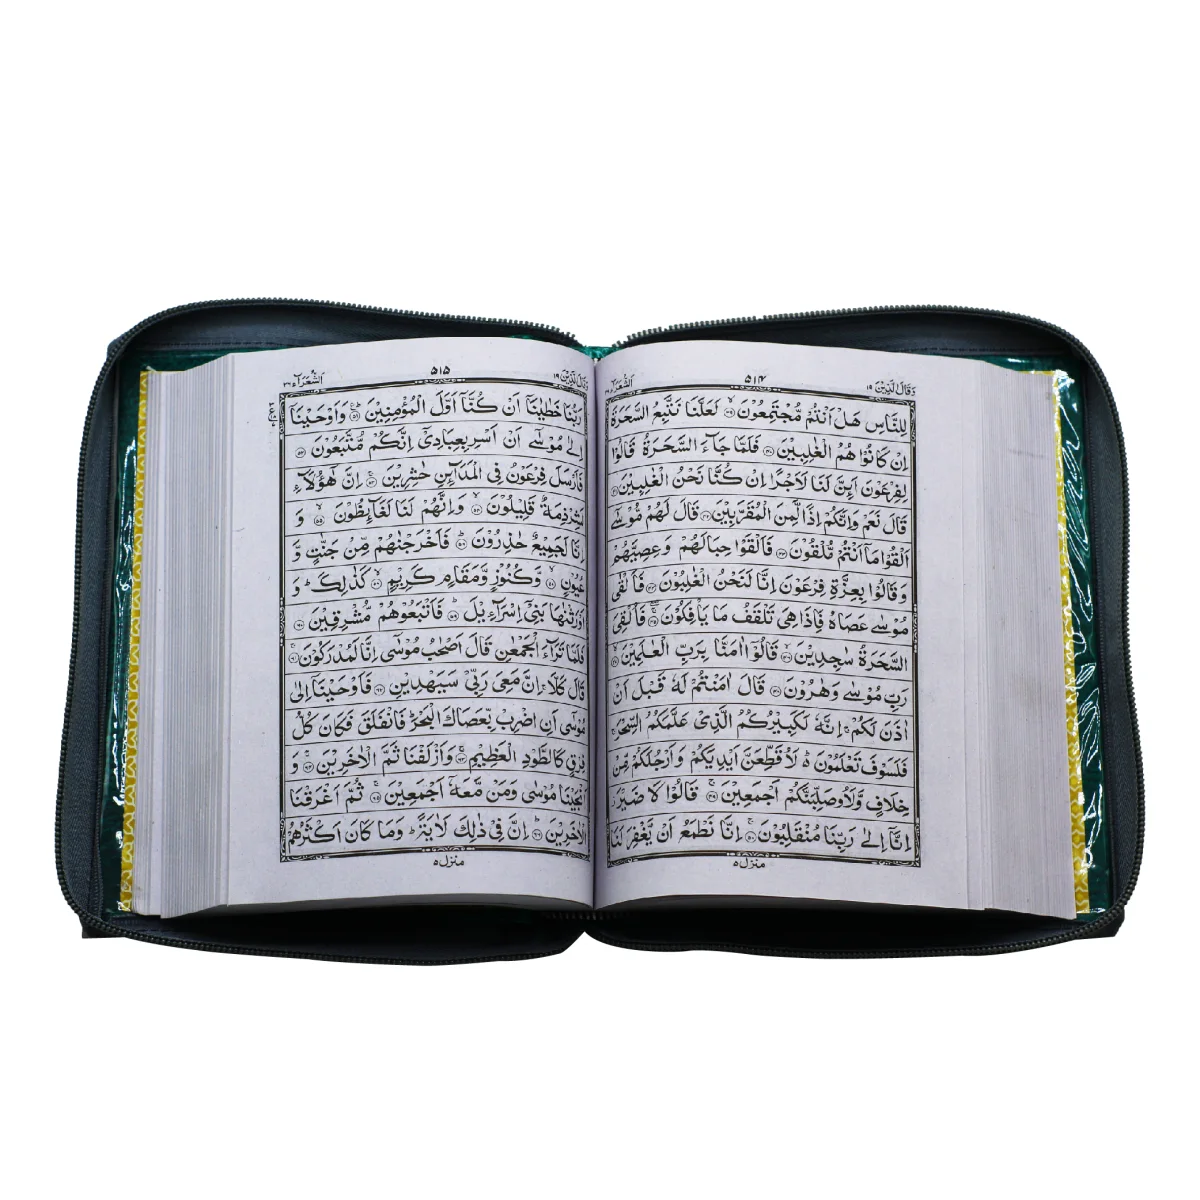 وَقَالَ الَّذِيْنَ ١٩
٥١٤
الشُّعَرَآء ٢٦
لِلنَّاسِ هَلْ اَنْتُمْ مُّجْتَمِعُوْنَ ﴿٣٩﴾ لَعَلَّنَا نَتَّبِعُ السَّحَرَةَ
اِنْ كَانُوْا هُمُ الْغٰلِبِيْنَ ﴿٤٠﴾ فَلَمَّا جَآءَ السَّحَرَةُ قَالُوْا
لِفِرْعَوْنَ اَئِنَّ لَنَا لَاَجْرًا اِنْ كُنَّا نَحْنُ الْغٰلِبِيْنَ ﴿٤١﴾
قَالَ نَعَمْ وَاِنَّكُمْ اِذًا لَّمِنَ الْمُقَرَّبِيْنَ ﴿٤٢﴾ قَالَ لَهُمْ مُّوْسٰۤى
اَلْقُوْا مَاۤ اَنْتُمْ مُّلْقُوْنَ ﴿٤٣﴾ فَاَلْقَوْا حِبَالَهُمْ وَعِصِيَّهُمْ
وَقَالُوْا بِعِزَّةِ فِرْعَوْنَ اِنَّا لَنَحْنُ الْغٰلِبُوْنَ ﴿٤٤﴾ فَاَلْقٰى
مُوْسٰى عَصَاهُ فَاِذَا هِيَ تَلْقَفُ مَا يَاْفِكُوْنَ ﴿٤٥﴾ فَاُلْقِيَ
السَّحَرَةُ سٰجِدِيْنَ ﴿٤٦﴾ قَالُوْۤا اٰمَنَّا بِرَبِّ الْعٰلَمِيْنَ ﴿٤٧﴾
رَبِّ مُوْسٰى وَهٰرُوْنَ ﴿٤٨﴾ قَالَ اٰمَنْتُمْ لَهٗ قَبْلَ اَنْ
اٰذَنَ لَكُمْ ۚ اِنَّهٗ لَكَبِيْرُكُمُ الَّذِيْ عَلَّمَكُمُ السِّحْرَ ۚ
فَلَسَوْفَ تَعْلَمُوْنَ ۬ؕ لَاُقَطِّعَنَّ اَيْدِيَكُمْ وَاَرْجُلَكُمْ مِّنْ
خِلَافٍ وَّلَاُوصَلِّبَنَّكُمْ اَجْمَعِيْنَ ﴿٤٩﴾ قَالُوْا لَا ضَيْرَ ؗ
اِنَّاۤ اِلٰى رَبِّنَا مُنْقَلِبُوْنَ ﴿٥٠﴾ اِنَّا نَطْمَعُ اَنْ يَّغْفِرَ لَنَا
منزل ٥
وَقَالَ الَّذِيْنَ ١٩
٥١٥
الشُّعَرَآء ٢٦
رَبُّنَا خَطٰيٰنَاۤ اَنْ كُنَّاۤ اَوَّلَ الْمُؤْمِنِيْنَ ﴿٥١﴾ وَاَوْحَيْنَاۤ
اِلٰى مُوْسٰۤى اَنْ اَسْرِ بِعِبَادِيْۤ اِنَّكُمْ مُّتَّبَعُوْنَ ﴿٥٢﴾
فَاَرْسَلَ فِرْعَوْنُ فِى الْمَدَآئِنِ حٰشِرِيْنَ ﴿٥٣﴾ اِنَّ هٰۤؤُلَآءِ
لَشِرْذِمَةٌ قَلِيْلُوْنَ ﴿٥٤﴾ وَاِنَّهُمْ لَنَا لَغَآئِظُوْنَ ﴿٥٥﴾ وَ
اِنَّا لَجَمِيْعٌ حٰذِرُوْنَ ﴿٥٦﴾ فَاَخْرَجْنٰهُمْ مِّنْ جَنّٰتٍ وَّ
عُيُوْنٍ ﴿٥٧﴾ وَّكُنُوْزٍ وَّمَقَامٍ كَرِيْمٍ ﴿٥٨﴾ كَذٰلِكَ ؕ وَ
اَوْرَثْنٰهَا بَنِيْۤ اِسْرَآءِيْلَ ﴿٥٩﴾ فَاَتْبَعُوْهُمْ مُّشْرِقِيْنَ ﴿٦٠﴾
فَلَمَّا تَرَآءَ الْجَمْعٰنِ قَالَ اَصْحٰبُ مُوْسٰۤى اِنَّا لَمُدْرَكُوْنَ ﴿٦١﴾
قَالَ كَلَّا ۚ اِنَّ مَعِيَ رَبِّيْ سَيَهْدِيْنِ ﴿٦٢﴾ فَاَوْحَيْنَاۤ اِلٰى
مُوْسٰۤى اَنِ اضْرِبْ بِّعَصَاكَ الْبَحْرَ ؕ فَانْفَلَقَ فَكَانَ كُلُّ
فِرْقٍ كَالطَّوْدِ الْعَظِيْمِ ﴿٦٣﴾ وَاَزْلَفْنَا ثَمَّ الْاٰخَرِيْنَ ﴿٦٤﴾ وَ
اَنْجَيْنَا مُوْسٰى وَمَنْ مَّعَهٗۤ اَجْمَعِيْنَ ﴿٦٥﴾ ثُمَّ اَغْرَقْنَا
الْاٰخَرِيْنَ ﴿٦٦﴾ اِنَّ فِيْ ذٰلِكَ لَاٰيَةً ؕ وَمَا كَانَ اَكْثَرُهُمْ
منزل ٥